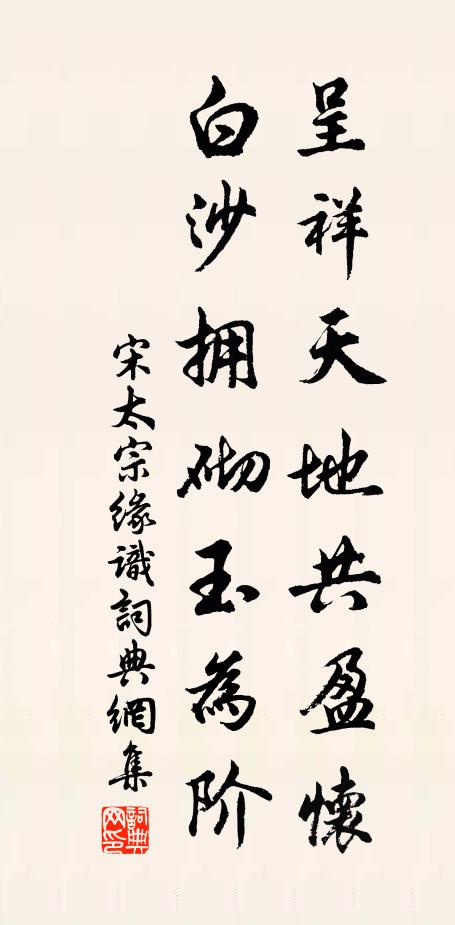 呈祥天地共盈懷
白沙拥砌玉為阶
宋太宗緣識詞典網集
詞典网印